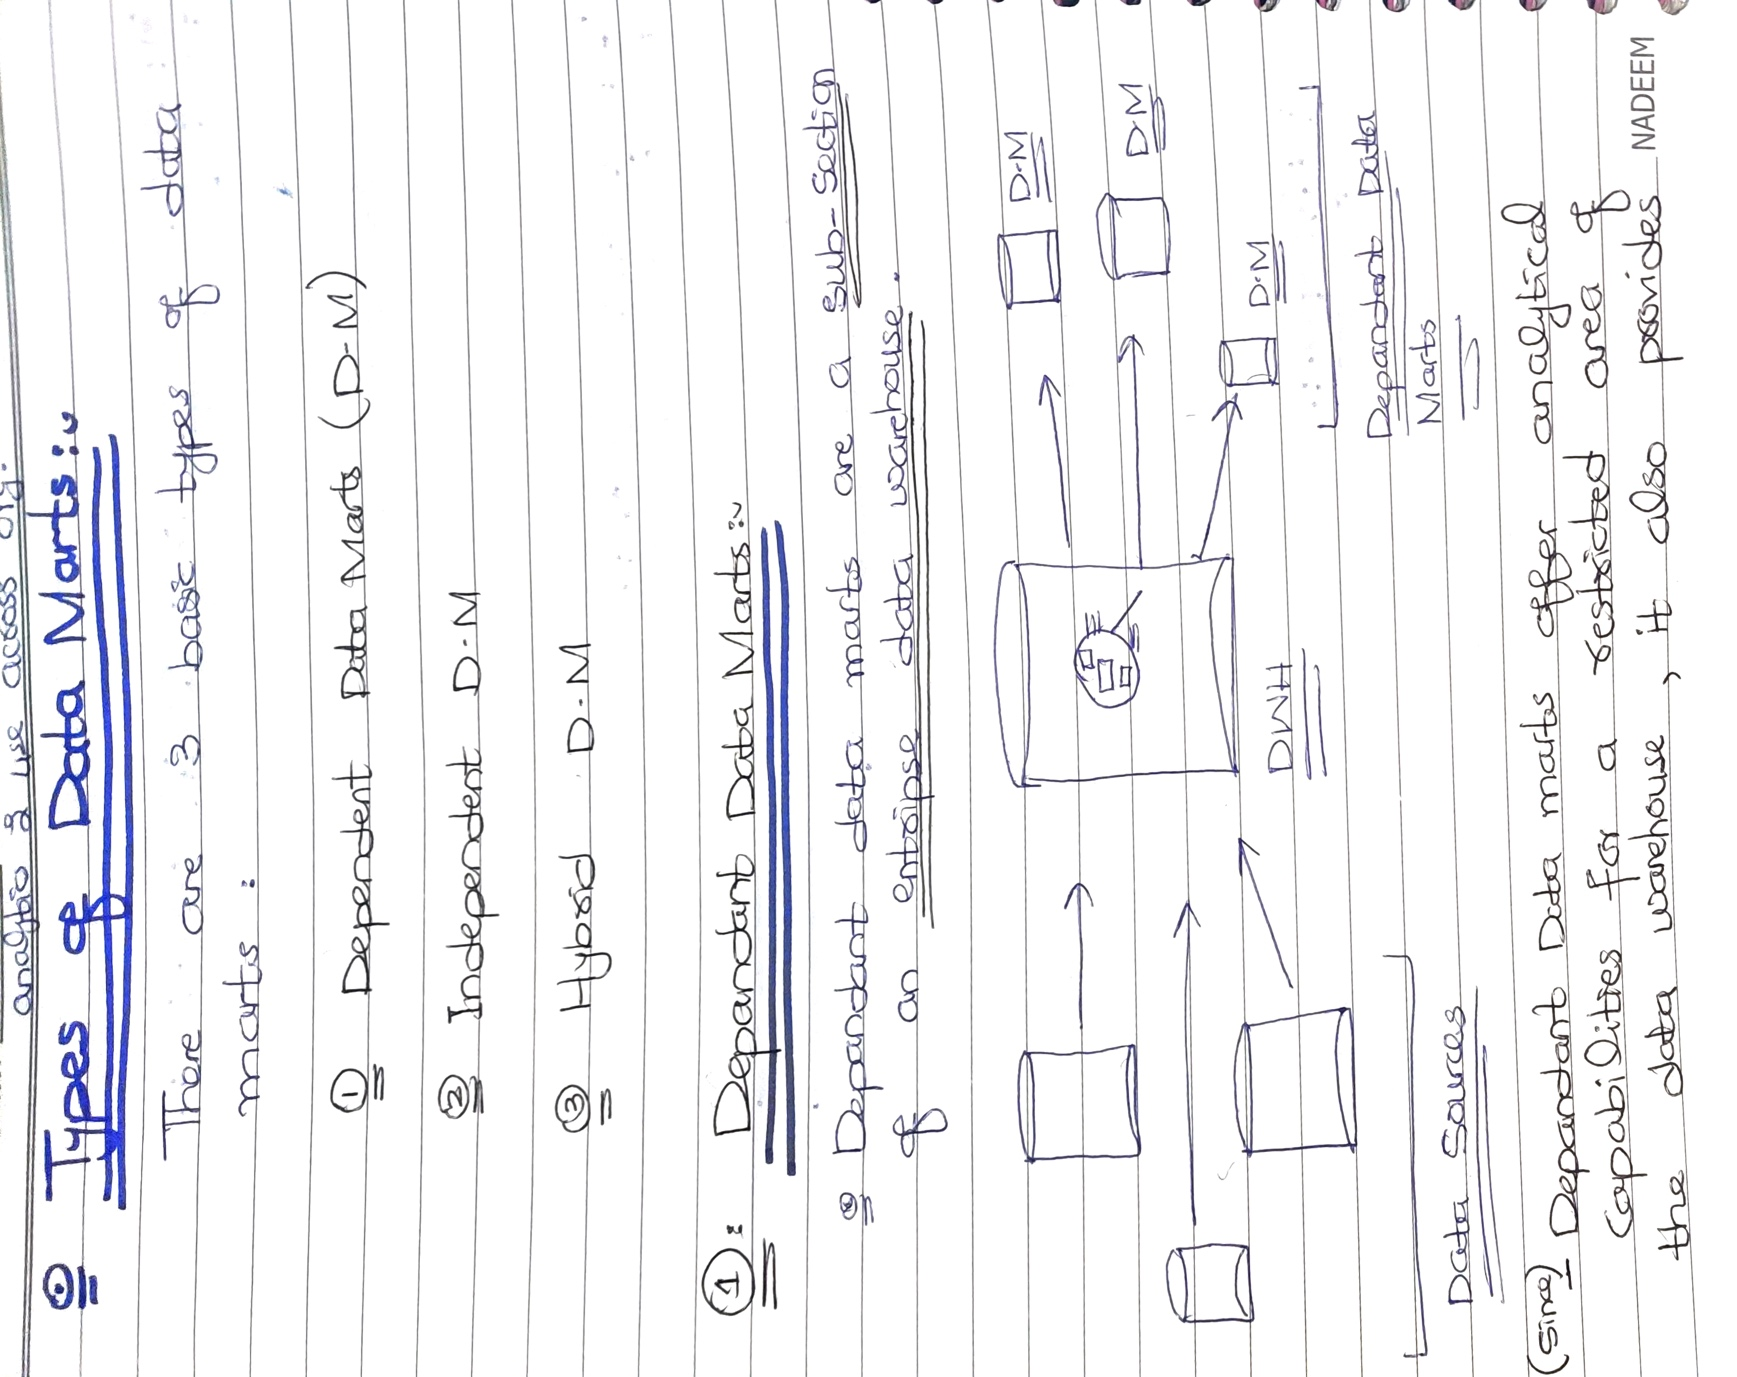 analysis & use across org.
Types of Data Marts:
There are 3 basic types of data
marts :
① Dependent Data Marts (D-M)
② Independent D-M
③ Hybrid D-M
①: Dependant Data Marts:
Dependant data marts are a sub-section
of an entripse data warehouse.
D-M
D-M
D-M
DWH
Dependant Data
Marts
Data Sources
(since) Dependant Data marts offer analytical
Capabilities For a restricted area of
the data warehouse, it also provides
NADEEM